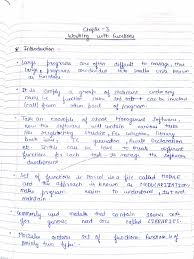 Chapter - 3
Working with Functions
Introduction
Large programs are often difficult to manage, thus
large programs are divided into smaller units known
as functions
It is simply a group of statements under any
name i.e. function name and can be invoked
(call) from other part of program.
Take an example of School Management Software,
now this software will contain various tasks like
Registering student, fee collection, library
books issue, TC generation, Result Declaration
etc. In this case we have to create different
functions for each task to manage the software
development.
Set of functions is stored in a file called MODULE
and this approach is known as MODULARIZATION,
makes program easier to understand, test and
maintain
Commonly used modules that contain source code
for generic need are called LIBRARIES.
Modules contains set of functions. Functions is of
mainly two types: